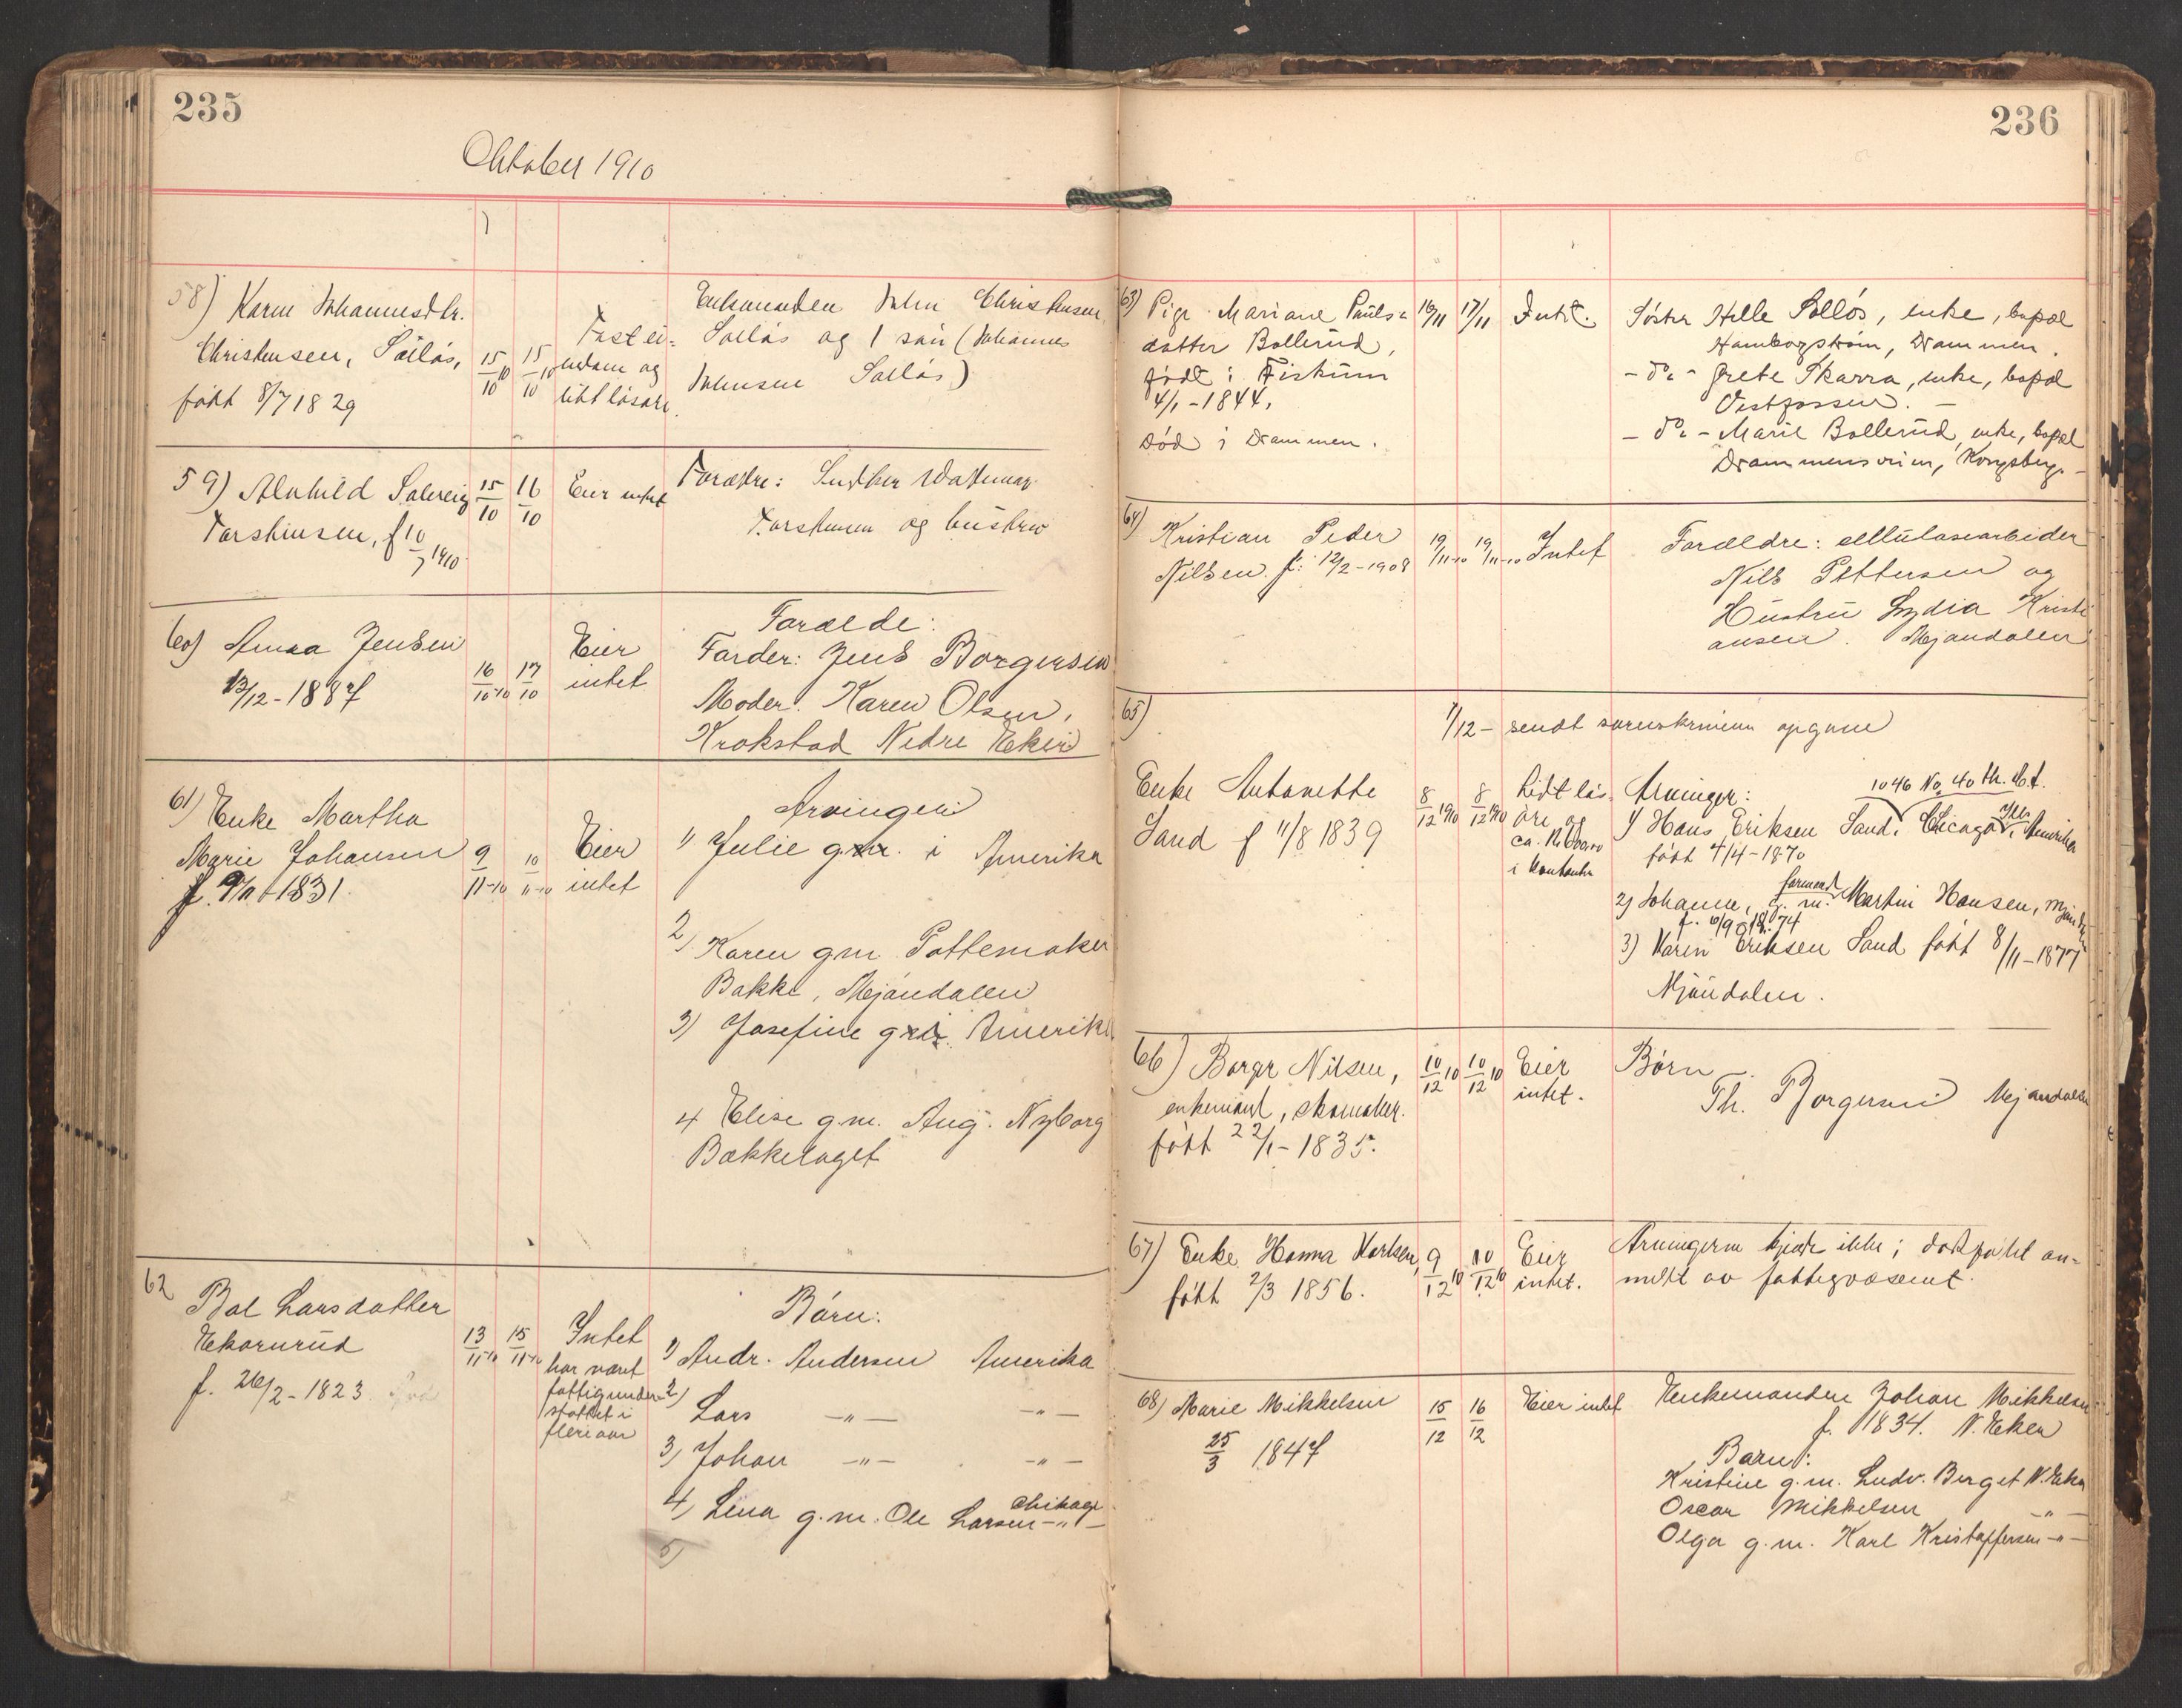 235
Oktober 1910
58) Karen Johannesdtr.
Christensen, Solløs,
født 8/7 1829
15/10 10
15/10 10
Fastei-
endom og
lidt løsøre.
Enkemanden John Christensen
Solløs og 1 søn (Johannes
Johnsen Solløs)
59) Alvhild Solveig
Torstensen, f 10/7 1910
15/10
16/10
Eier intet
Forældre:
Torstensen og hustru
60) Anna Jensen
13/12-1887
16/10 10
17/10
Eier
intet
Forælde:
Farder: Jens Borgersen
Moder. Karen Olsen,
Krokstad Nedre Eker
61) Enke Martha
Marie Johansen
f. 9/11 1831.
9/11-10
10/11-10
Eier
intet
Arvinger
1) Julie g. i Amerika
2) Karen g m Pottemaker
Bakke, Mjøndalen
3) Josefine g i Amerika
4 Elise g.m. Aug. Nyborg
Bækkelaget
62
Bol Larsdatter
Ekornrud
f. 26/2-1823
13/11-10
15/11-10
Intet
har været
fattigunder-
støttet i
flere aar
Børn:
1) Andr. Andersen Amerika
2) Lars -"- -"-
3) Johan -"- -"-
4) Lina g.m. Ole Larsen Chikago -"-
5)
236
63) Pige Mariane Pauls-
datter Bollerud,
født i Fiskum
4/1-1844,
Død i Drammen.
16/11
17/11
Intet.
Søster Helle Solløs, enke, bopæl
Hamborgstrøm, Drammen.
- do - Grete Skarra, enke, bopæl
Vestfossen. -
- do - Marie Bollerud, enke, bopæl
Drammensveien, Kongsberg. -
64)
Kristian Peder
Nilsen. f: 12/2-1908
19/11-10
19/11-10
Intet
Forældre: cellulosearbeider
Nils Pettersen og
Hustru Lydia Kristi
ansen. Mjøndalen
65)
1/12 - sendt sorenskriveren opgave
Enke Antonette
Sand f 11/8 1839
8/12 1910
8/12 1910
Lidt løs-
øre og
i kontanter
Arvinger:
1046 No. 40 th. Ct.
1) Hans Eriksen Sand, Chicago Ill. Amerika
født 4/4-1870
2) Johanne, g. m. formand Martin Hansen, Mjøndalen
f. 6/9 1874
3) Karen Eriksen Sand født 8/11-1877
Mjøndalen.
66) Borger Nilsen,
enkemand, skomaker.
født 22/1-1835.
10/12 10
10/12 10
Eier
intet.
Børn
Th. Borgersen Mjøndalen
67) Enke Hanna Karlsen,
født 2/3 1856.
9/12 10
10/12 10
Eier
intet.
Arvingerne kjendes ikke; dødsfaldet an-
meldt av fattigvæsenet.
68) Marie Mikkelsen
25/3 1847
15/12
16/12
Eier intet
Enkemanden Johan Mikkelsen
f. 1834. N. Eker
Barn:
Kristine g.m. Ludv. Berget N. Eker
Oscar Mikkelsen -"-
Olga g.m. Karl Kristoffersen -"-